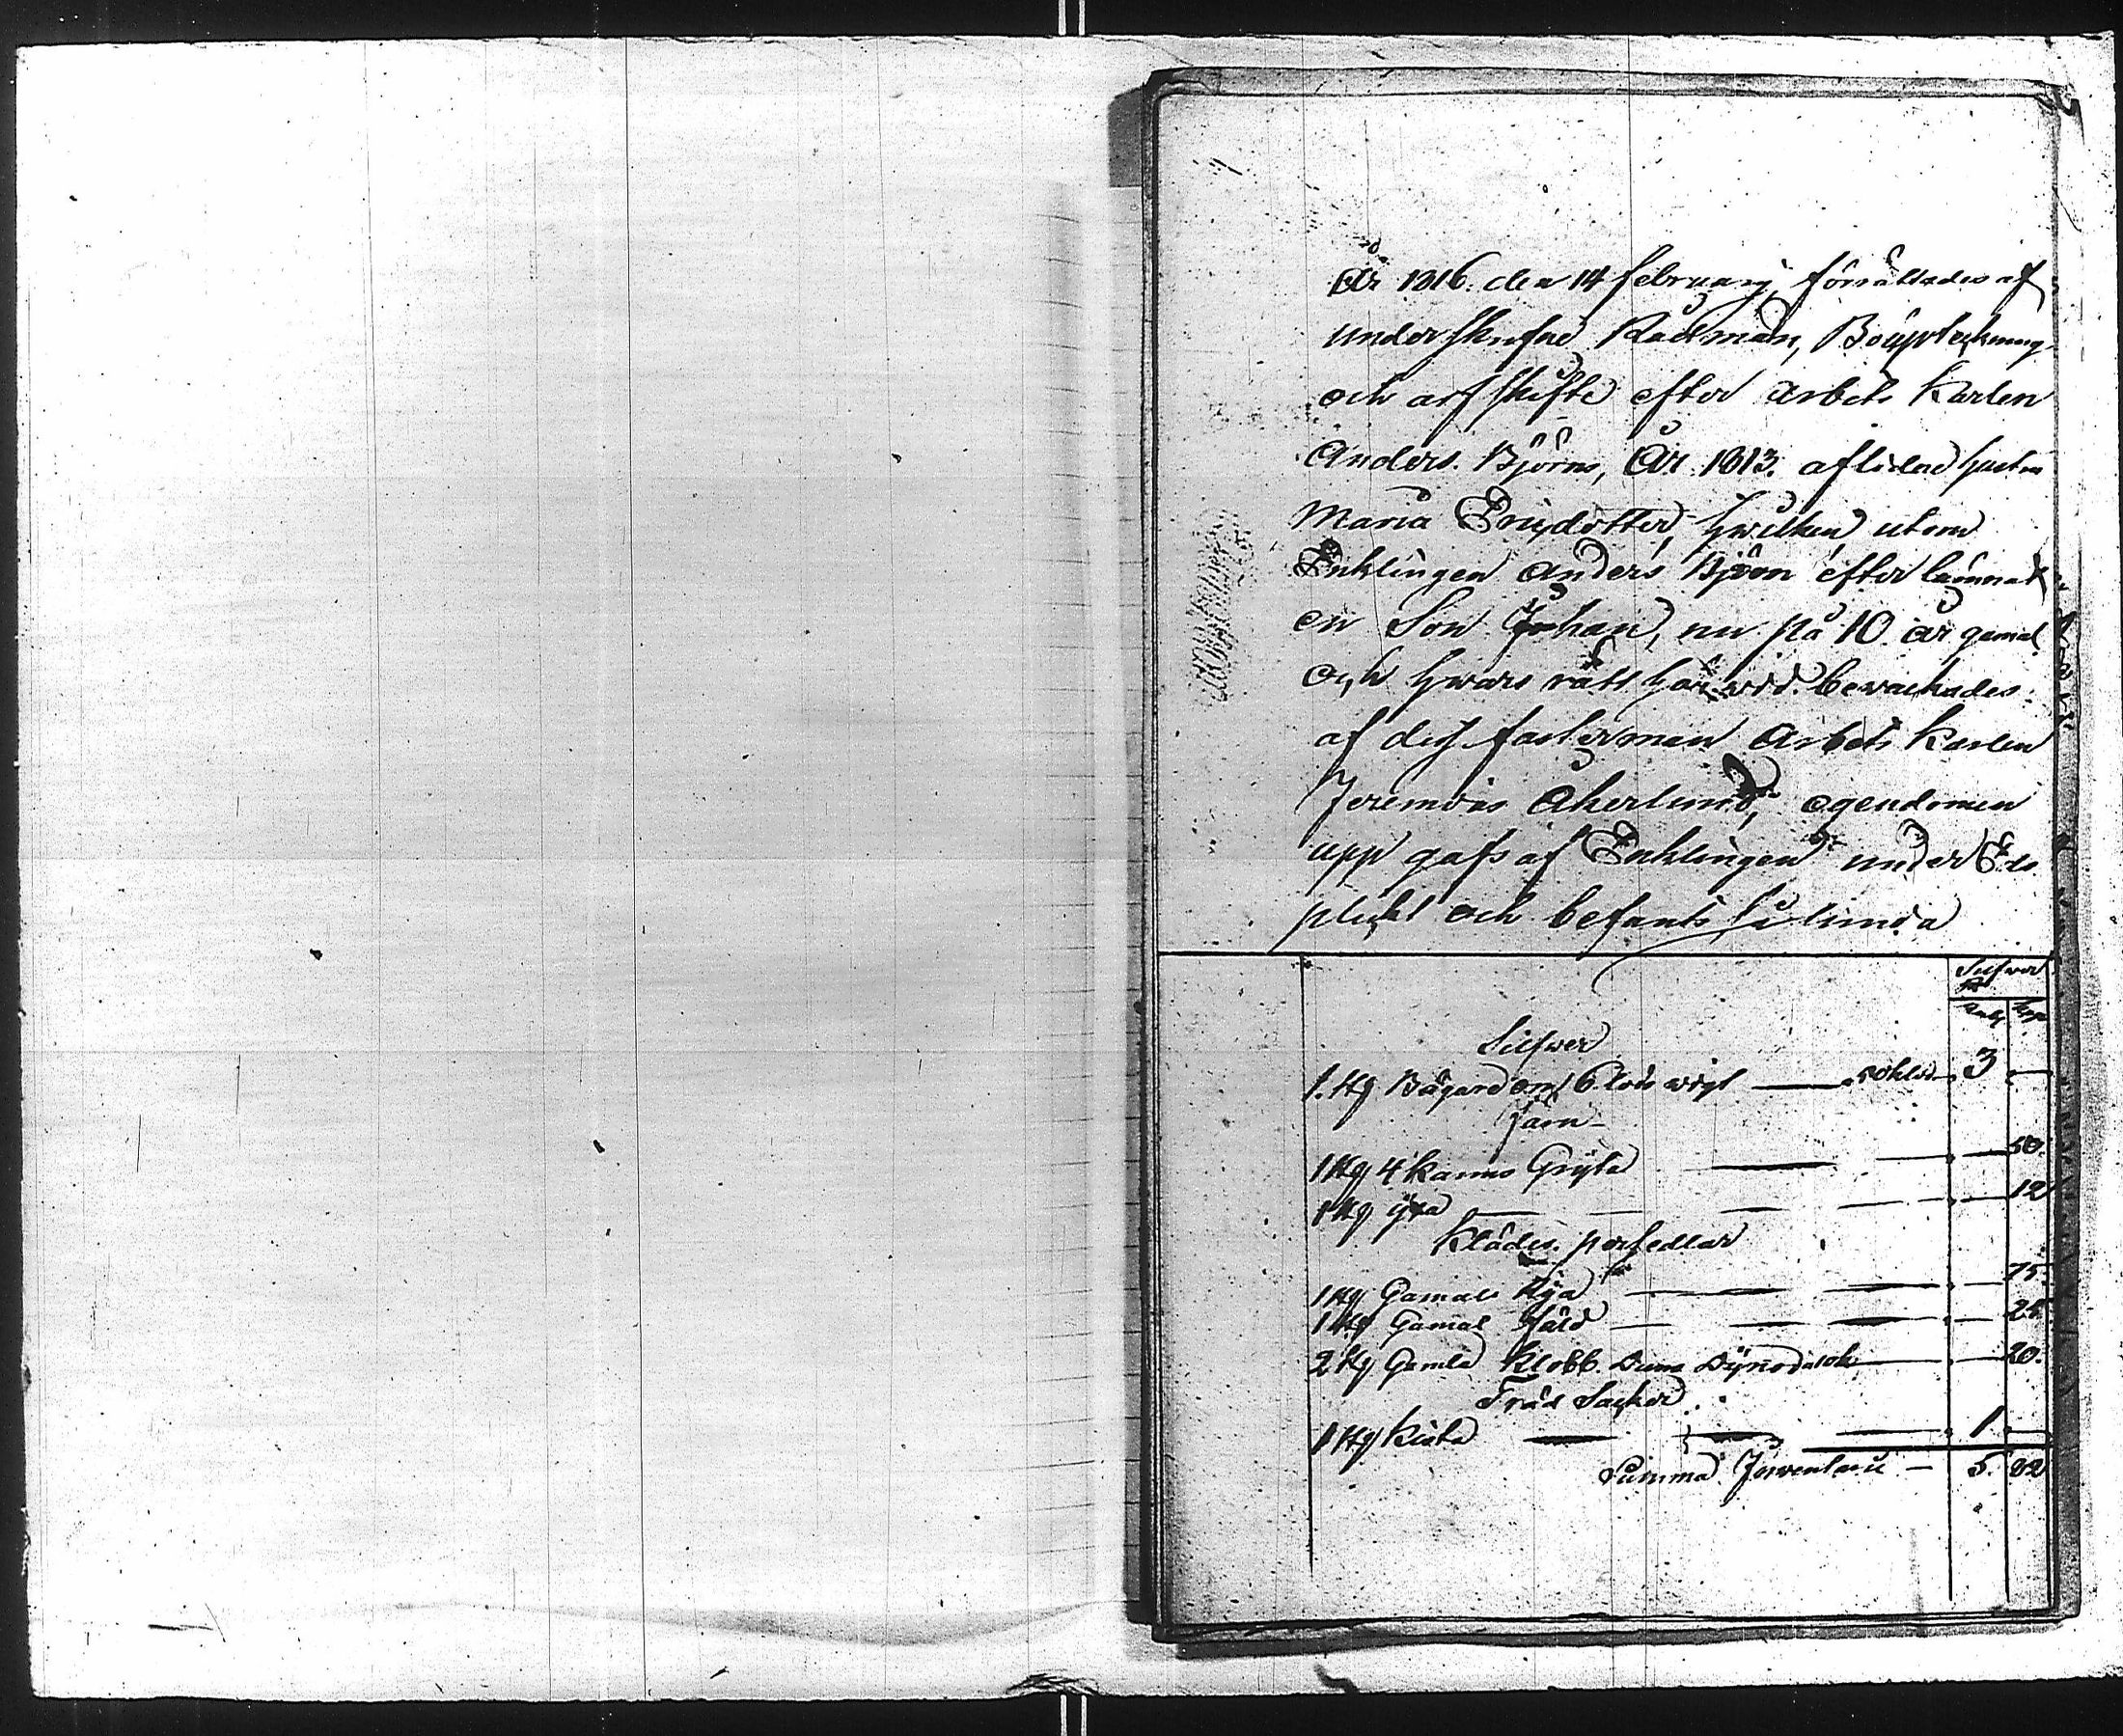 År 1816. den 14 februarij, förrättades af
underskrefne Rådman, Bouptekning
och arfskifte efter arbets Karlen
Anders Björns, År 1813. aflidne hustru
Maria Ersdotter, hwilken utom
Enklingen Anders Björn efter lämnat
en Son Johan, nu på 10 år gamal
och hwars rätt härwid bewackades
af dess fastermän Arbets Karlen
Jeremias Åkerlund, egendomen
upp gafs af Enklingen under Eds
plickt och befants få lunda
Silfwer
Rub kop
Silfwer
1. st Bägare om 6 lod wigt 50 k lod 3
Järn
1 st 4 kanns Gryta 50.
1 st yxa 12
Klädes persedlar
1 st Gamal Rya 75.
1 st Gamal fäld 25.
2 st Gamla Dyno 20.
Träd Saker
1 st Kista 1
Summa Inventarii 5. 82